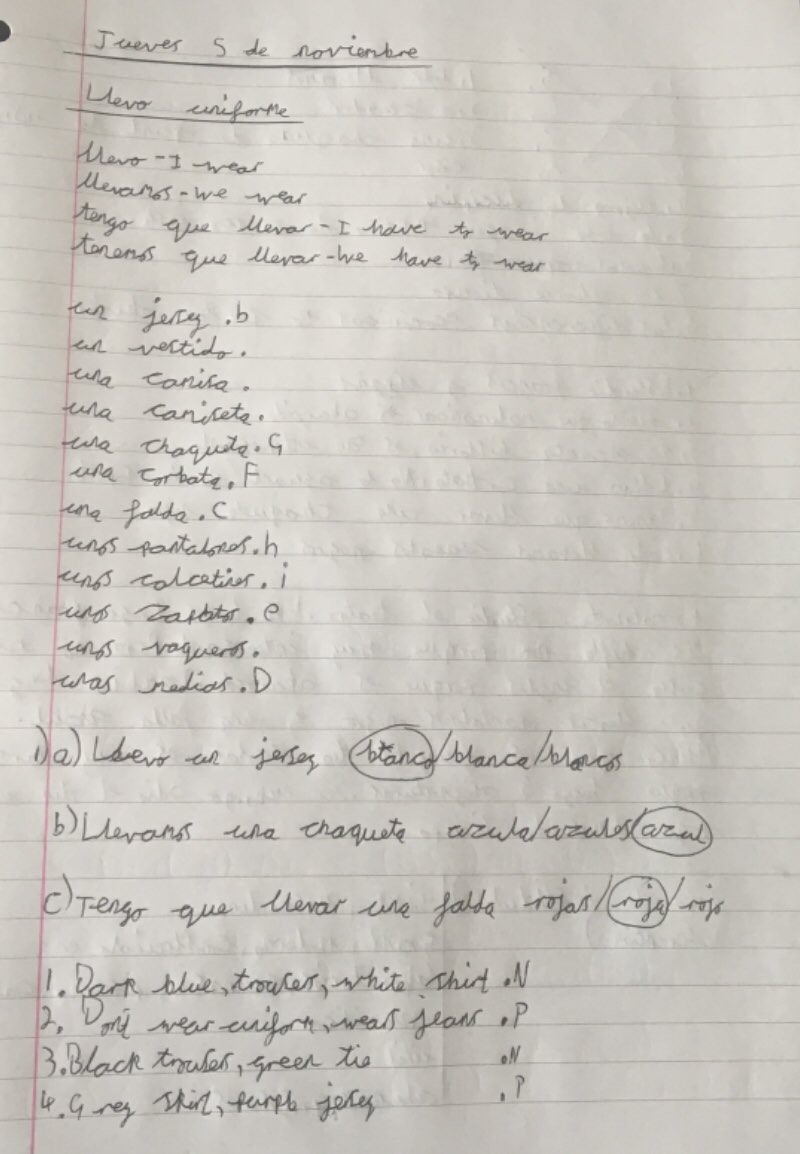 Jueves 5 de noviembre
Llevo uniforme
llevo - I wear
llevamos - we wear
tengo que llevar - I have to wear
tenemos que llevar - we have to wear
un jersey .b
un vestido.
una camisa.
una camiseta.
una chaqueta. G
una corbata. F
una falda. C
unos pantalones. h
unos calcetines. i
unos zapatos. e
unos vaqueros.
unas medias. D
1) a) Llevo un jersey blanco/blanca/blancos
b) Llevamos una chaqueta azula/azules/azul
c) Tengo que llevar una falda rojas/roja/rojo
1. Dark blue, trousers, white shirt .N
2. Don't wear uniform, wears jeans .P
3. Black trousers, green tie .N
4. Grey skirt, purple jersey .P